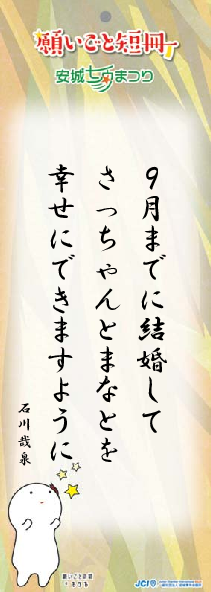 願いごと短冊
安城七夕まつり
9月までに結婚して
さっちゃんとまなとを
幸せにできますように
石川哉泉
願いごと短冊
JCI